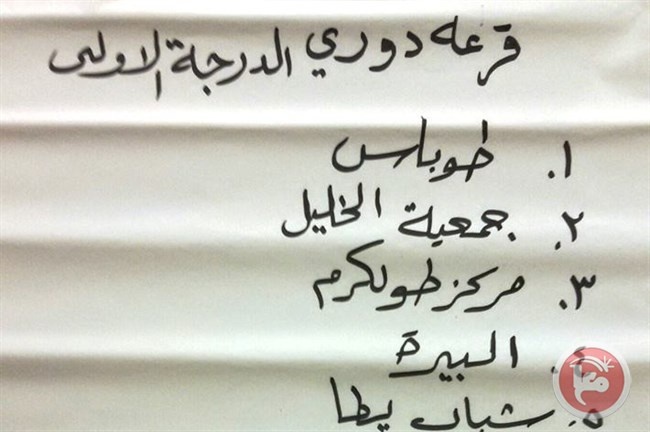 قرعه دوري الدرجة الاولى
١. طوباس
٢. جمعية الخليل
٣. مركز طولكرم
٤. البيرة
٥. شباب يطا